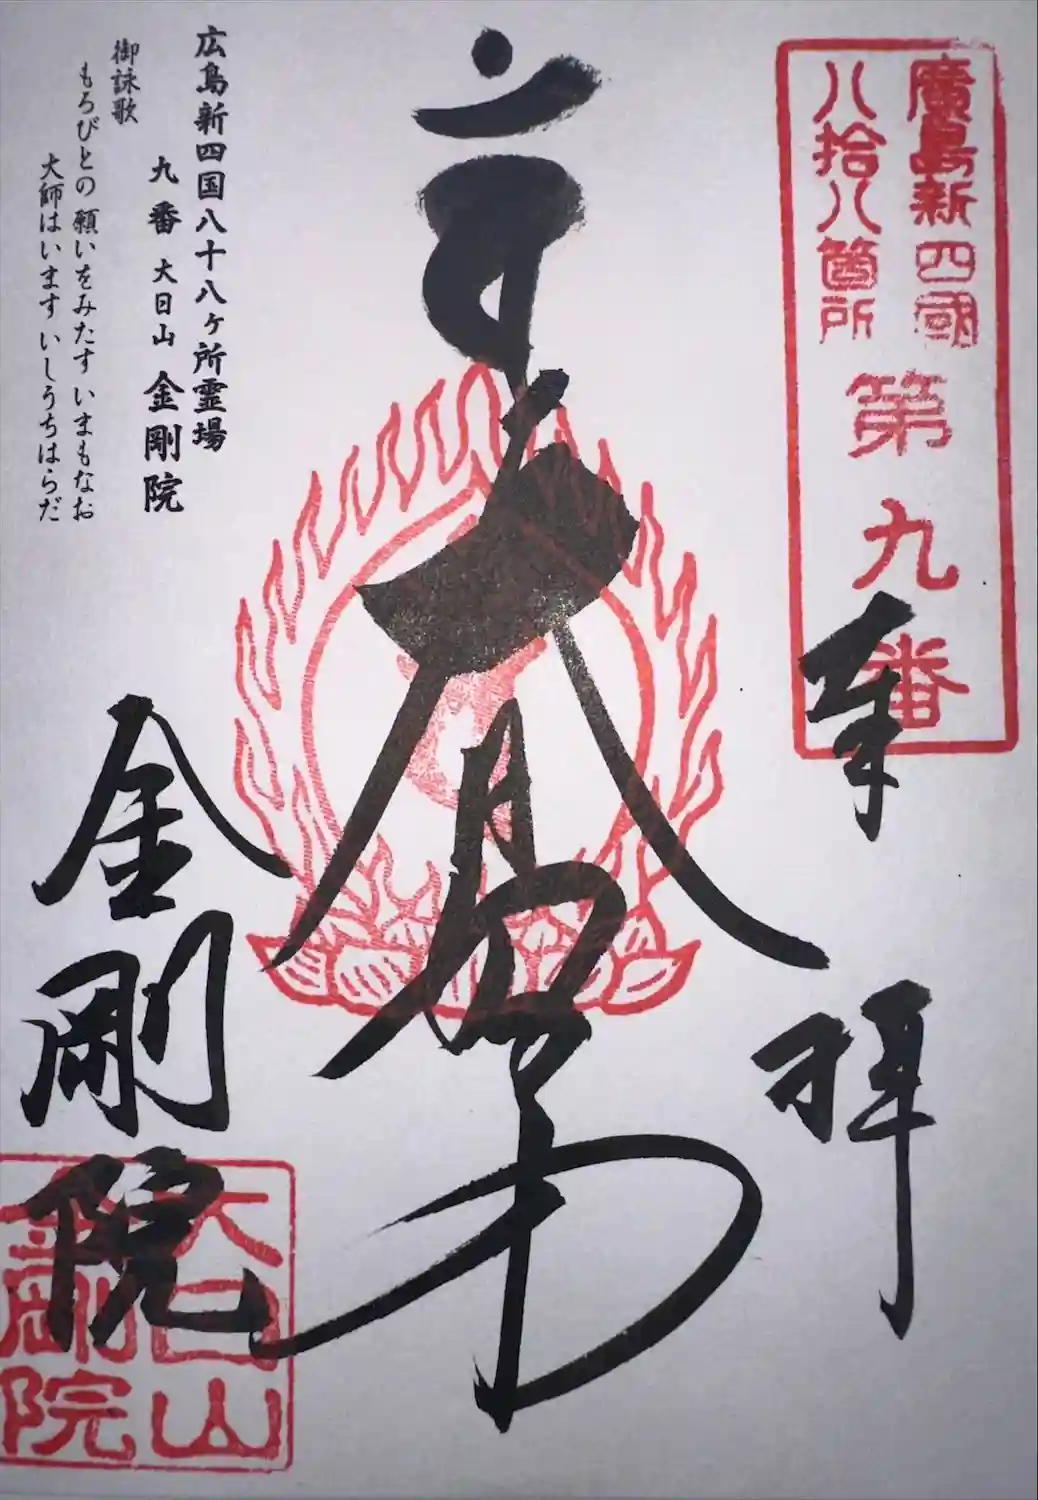 廣島新四國
八拾八箇所
第九番
奉拝
金剛院
大日山
金剛院
広島新四国八十八ヶ所霊場
九番 大日山 金剛院
御詠歌
もろびとの 願いをみたす いまもなお
大師はいます いしうちはらだ